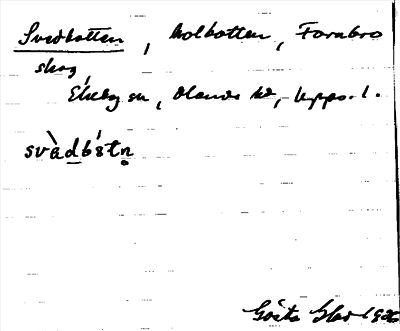 Svedbotten, kolbotten, Fornbro
skog,
Ekeby sn, Olands hd, Upps. l.
svàdbótn̥
Gösta